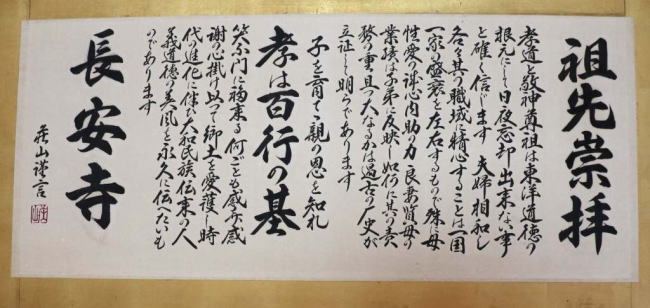 祖先崇拝
孝道と敬神尊祖は東洋道徳の
根元にして日夜忘却出来ない事
と確く信じます 夫婦相和し
各々其の職域に精心することは一国
一家の盛衰を左右するもので殊に母
性愛の誠心内助の力良妻賢母の
業績は子弟に反映し如何に其の責
務の重且つ大なるかは過去の人史が
立証して明らかであります
子を育てゝ親の恩を知れ
孝は百行の基
笑ふ門に福来る何ごとも感亦感
謝の心掛け以つて郷土を愛護し時
代の進化に伴ひ大和民族伝来の人
義道徳の美風を永久に伝へたいも
のであります
長安寺
山謹言